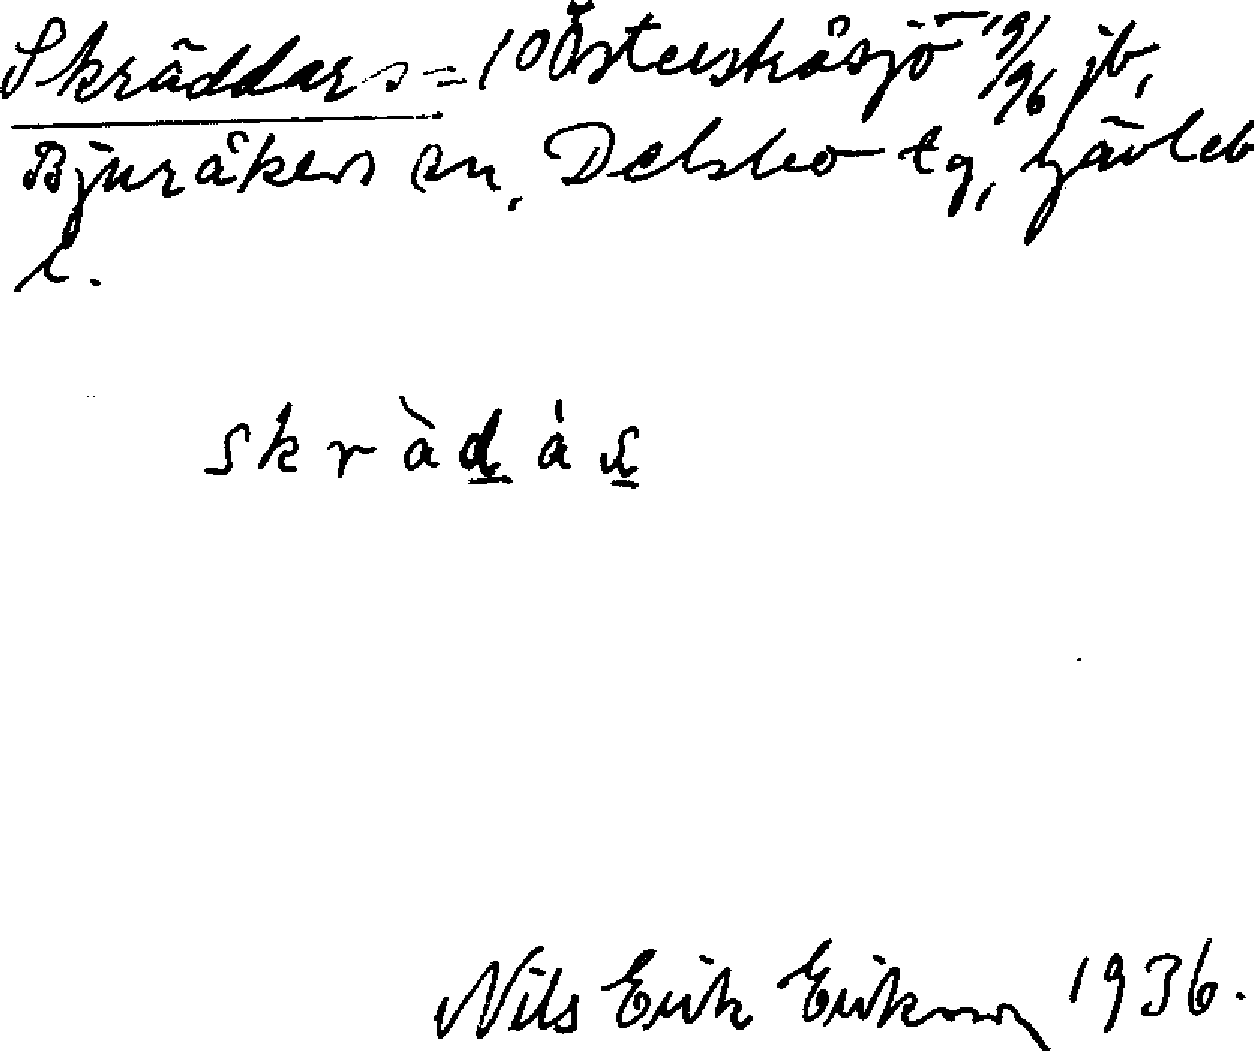 Skräddars = 10 Österskåsjö 19/96 jb,
Bjuråkers sn, Delsbo tg, Gävleb
l.
skràdás
Nils Erik Erikson 1936.